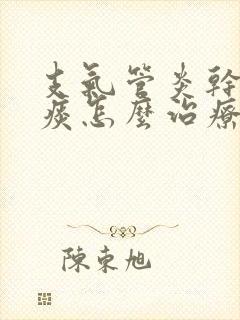 支氣管炎幹
痰怎麼治療
陳東旭